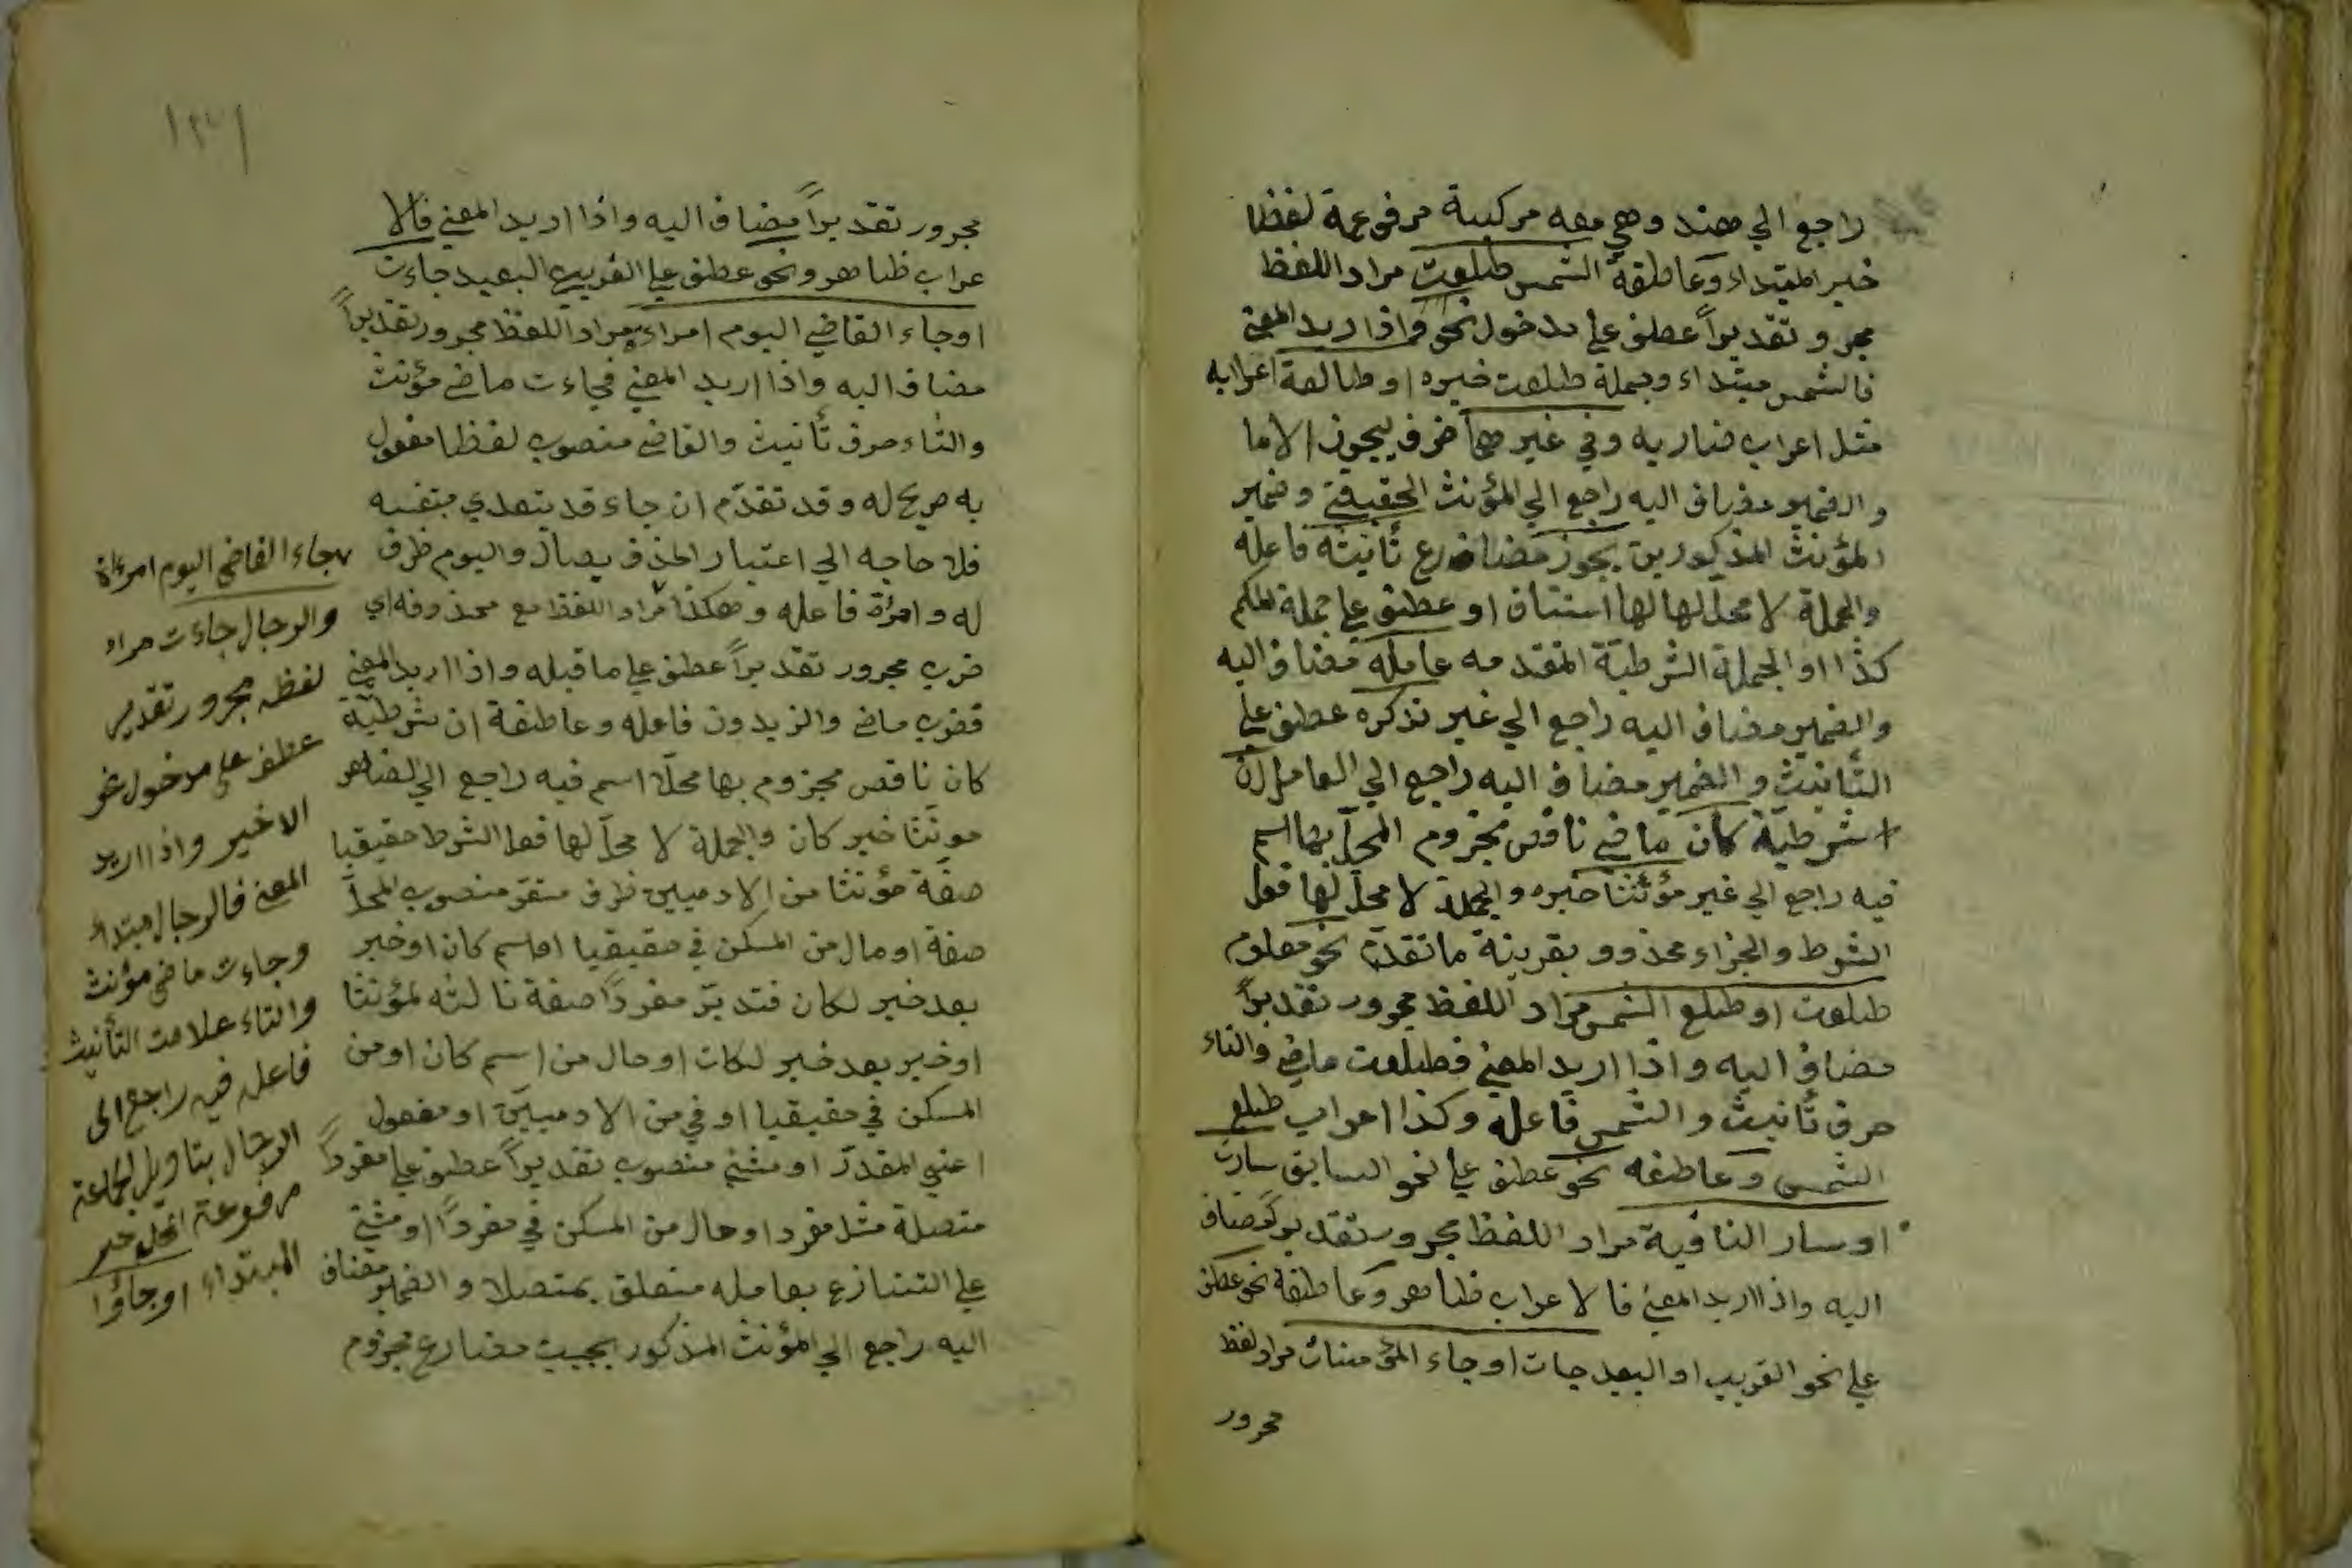 راجع الي هند وهي معه مركبة مرفوعة لفظا
خبر المبتداء وعاطفة الشمس طلعت مراد اللفظ
مجرو تقديراً عطف علي مدخول نحو واذا اريد المعني
فالشمس مبتداء وجملة طلعت خبره او طالعة اعرابه
مثل اعراب ضاربه وفي غير هما ظرف ليجوز الاما
والضمير مضاف اليه راجع الي المؤنث الحقيقي وضمير
المؤنث المذكورين يجوز مضارع تأنيثه فاعله
والجملة لا محلّ لها استئناف او عطف علي جملة الحكم
كذا او الجملة الشرطيّة المتقدمه عامله مضاف اليه
والضمير مضاف اليه راجع الي غير تذكره عطف علي
التأنيث والضمير مضاف اليه راجع الي العامل ان
شرطيّة كان ماضي ناقص مجزوم المحلّ بها اسم
فيه راجع الي غير مؤنثا خبره والجملة لا محلّ لها فعل
الشرط والجزاء محذوو بقرينة ما تقدّم نحو معلوم
طلعت او طلع الشمس مراد اللفظ مجرور تقديراً
مضاف اليه واذا اريد المعني فطلعت ماضي والتاء
حرف تأنيث والشمس فاعله وكذا اعراب طلع
الشمس وعاطفه نحو عطف علي نحو السابق سارت
او سار الناقية مراد اللفظ مجرور تقدير مضاف
اليه واذا اريد المعني فالاعراب ظاهر وعاطفة نحو عطف
علي نحو القريب او البعيد جات او جاء المؤمنات مراد لفظ
مجرور
مجرور تقديراً مضاف اليه واذا اريد المعني فالا
عراب ظاهر ونحو عطف علي القريب البعيد جاءت
او جاء القاضي اليوم امراءة مراد اللفظ مجرور تقديراً
مضاف اليه واذا اريد المعني فجاءت ماضي مؤنث
والتاء حرف تأنيث والقاضي منصوب لفظا مفعول
به صريح له وقد تقدّم ان جاء قد يتعدي بنفسه
فلا حاجه الي اعتبار الحذف يصال واليوم ظرف
له وامرأة فاعله وهكذا مراد اللفظ مع محذوفه اي
ضرب مجرور تقديراً عطف علي ما قبله واذا اريد المعني
فضرب ماضي والزيدون فاعله وعاطفة ان شرطيّة
كان ناقص مجزوم بها محلّا اسم فيه راجع الي الضاهر
مونثا خبر كان والجملة لا محلّ لها فعل الشرط حقيقيا
صفة مؤنثا من الادميين ظرف مستقر منصوب المحلّ
صفة او حال من المسكن في حقيقيا او اسم كان او خبر
بعد خبر لكان فتدبّر مفرداً صفة ثالثه لمؤنثا
او خبر بعد خبر لكان او حال من اسم كان او من
المسكن في حقيقيا او في من الادميين او مفعول
اعني المقدّر او مثني منصوب تقديراً عطف علي مفرداً
متصلة مثل مفرد او حال من المسكن في مفرداً او مثني
علي التنازع بعامله متعلق بمتصلا والضمير مضاف
اليه راجع الي المؤنث المذكور يجيب مضارع مجزوم
جاء القاضي اليوم امرءاة
والرجال جاءت مراد
لفظه مجرور تقدير
عطف علي مدخول نحو
الاخير واذا اريد
المعني فالرجال مبتداء
وجاءت ماضي مؤنث
والتاء علامت التأنيث
فاعله فيه راجع الى
الرجال بتاويل الجماعة
مرفوعة المحل خبر
المبتداء او جاؤا